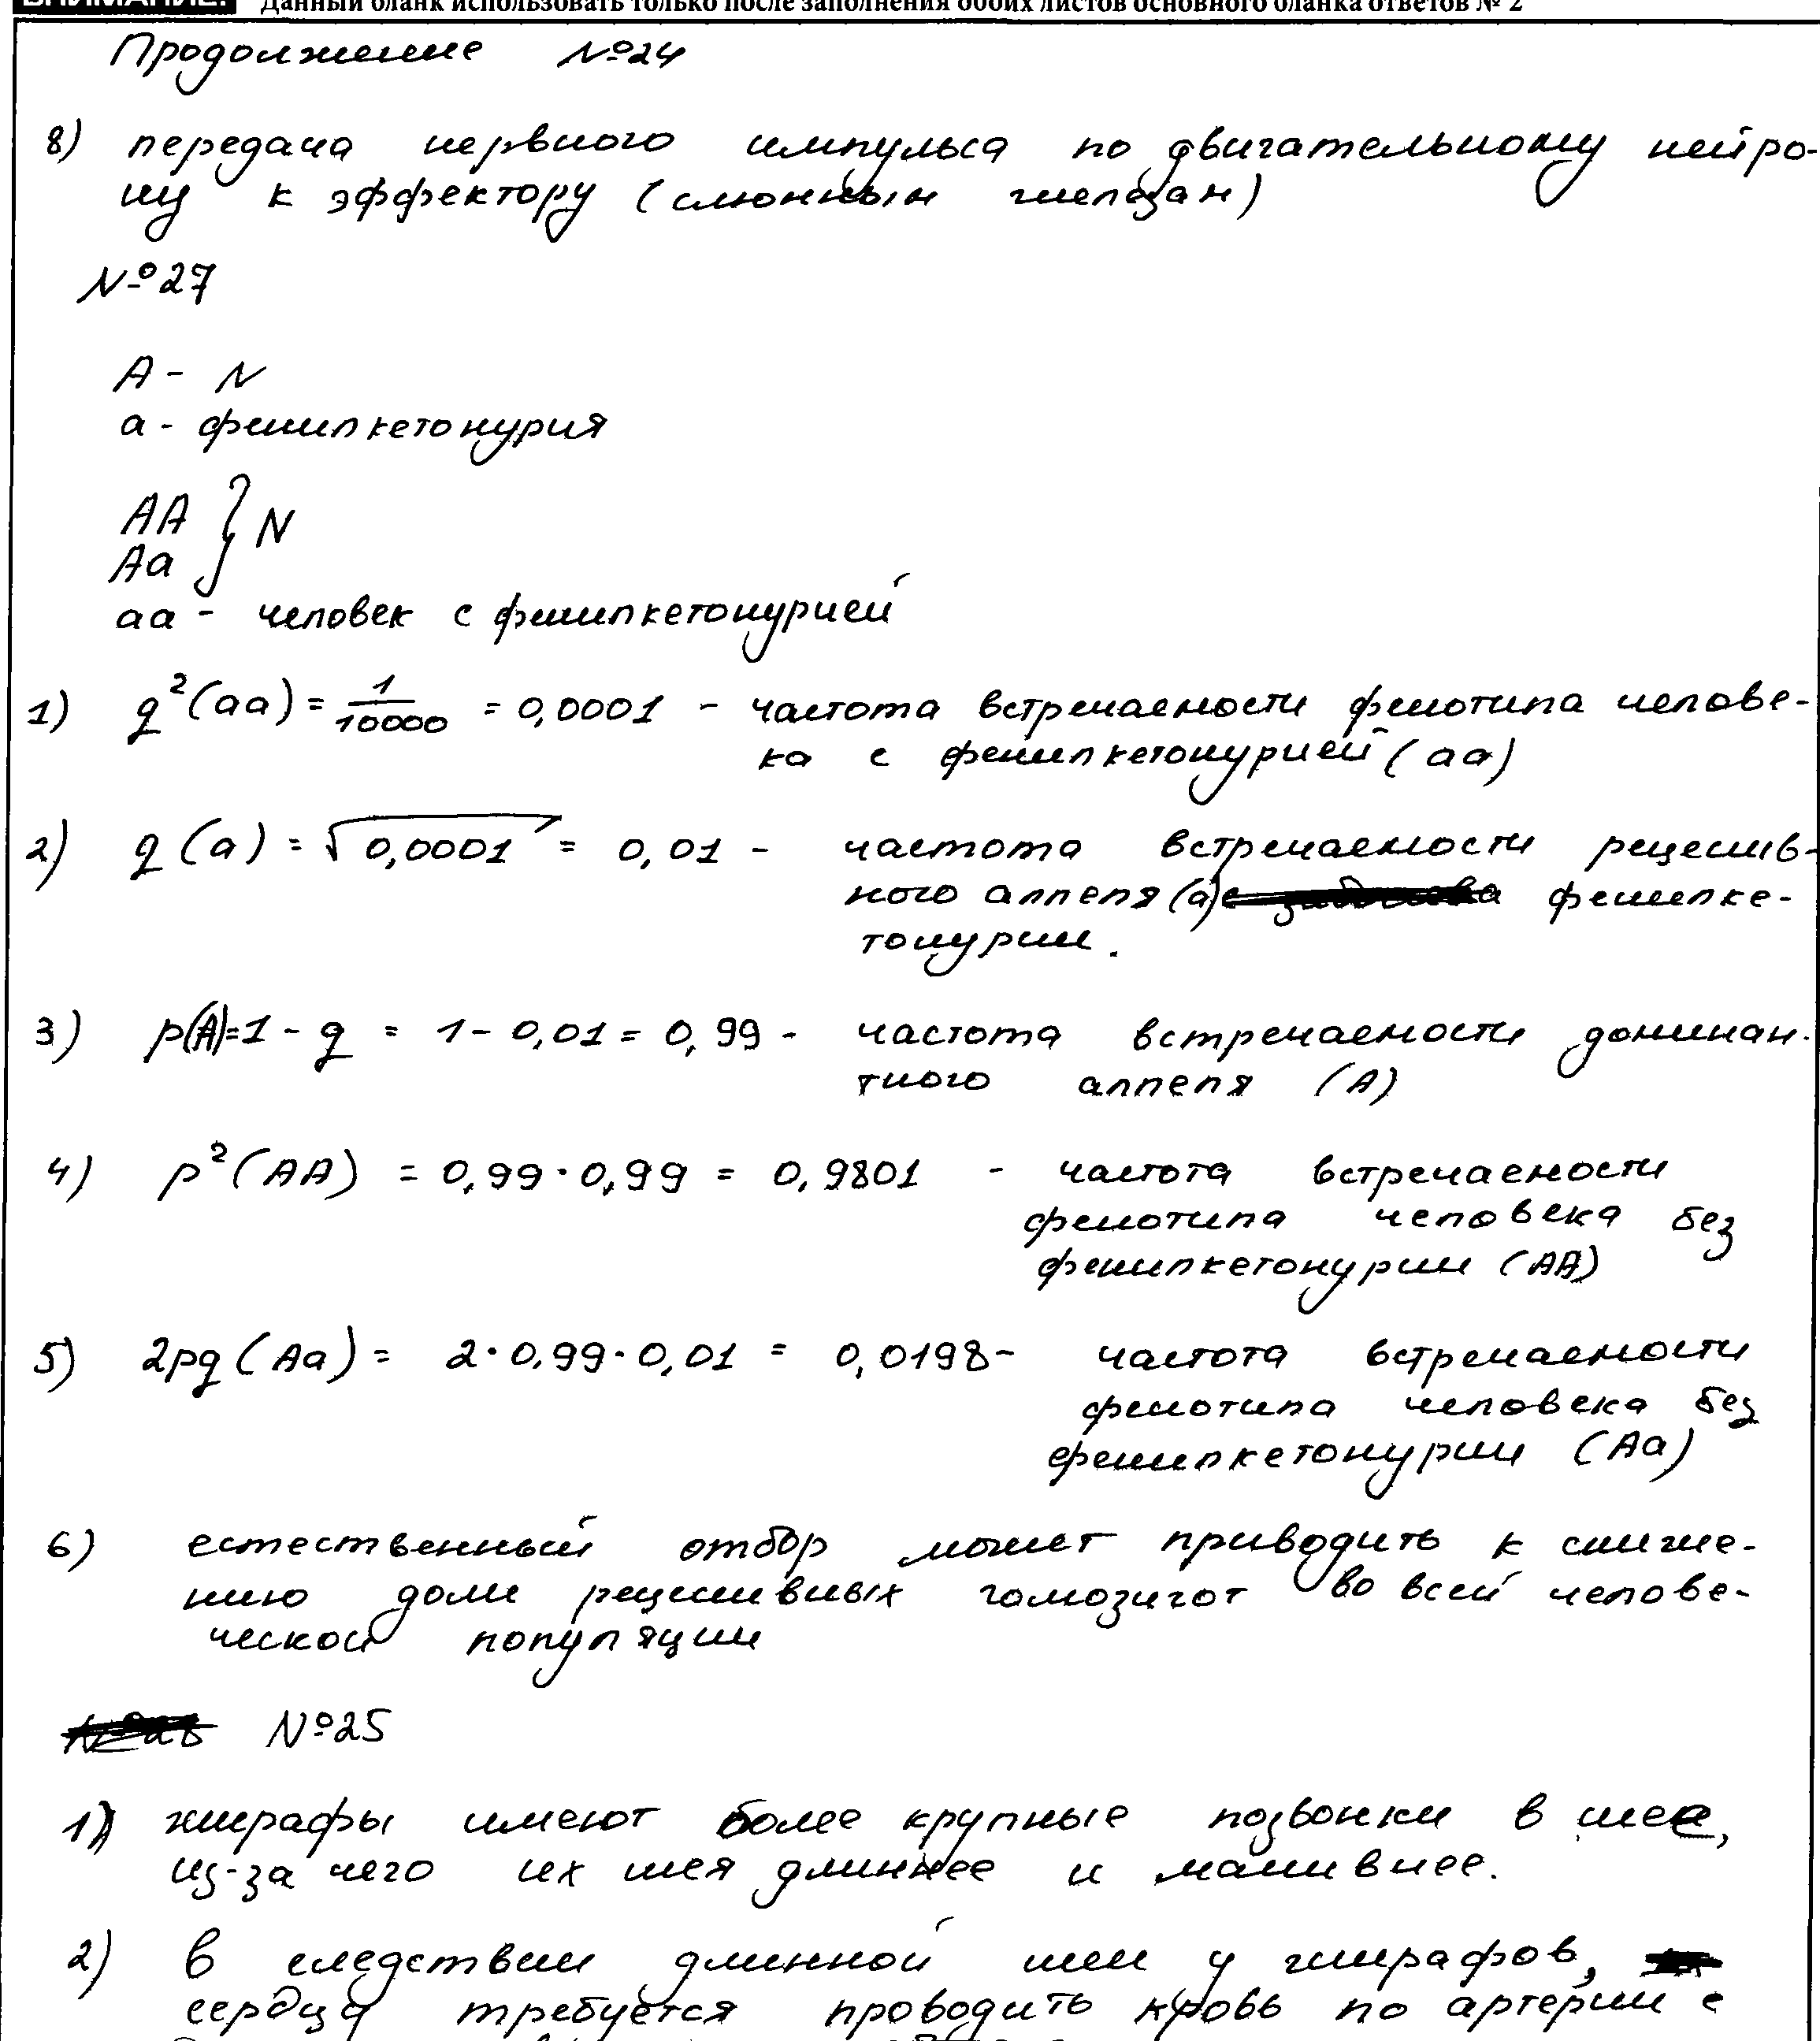 ВНИМАНИЕ! Данный бланк использовать только после заполнения обоих листов основного бланка ответов № 2
Продолжение №24
8) передача нервного импульса по двигательному нейро-
ну к эффектору (слюнным железам)
№27
A - N
a - фенилкетонурия
AA } N
Aa
aa - человек с фенилкетонурией
1) q²(aa) = 1/10000 = 0,0001 - частота встречаемости фенотипа челове-
ка с фенилкетонурией (aa)
2) q(a) = √0,0001 = 0,01 - частота встречаемости рецессив-
ного аллеля (a) фенилке-
тонурии.
3) p(A)=1-q = 1-0,01 = 0,99 - частота встречаемости доминан-
тного аллеля (A)
4) p²(AA) = 0,99·0,99 = 0,9801 - частота встречаемости
фенотипа человека без
фенилкетонурии (AA)
5) 2pq(Aa) = 2·0,99·0,01 = 0,0198 - частота встречаемости
фенотипа человека без
фенилкетонурии (Aa)
6) естественный отбор может приводить к сниже-
нию доли рецессивных гомозигот во всей челове-
ческой популяции
№25
1) жирафы имеют более крупные позвонки в шее,
из-за чего их шея длиннее и массивнее.
2) в следствии длинной шеи у жирафов,
сердцу требуется проводить кровь по артерии с